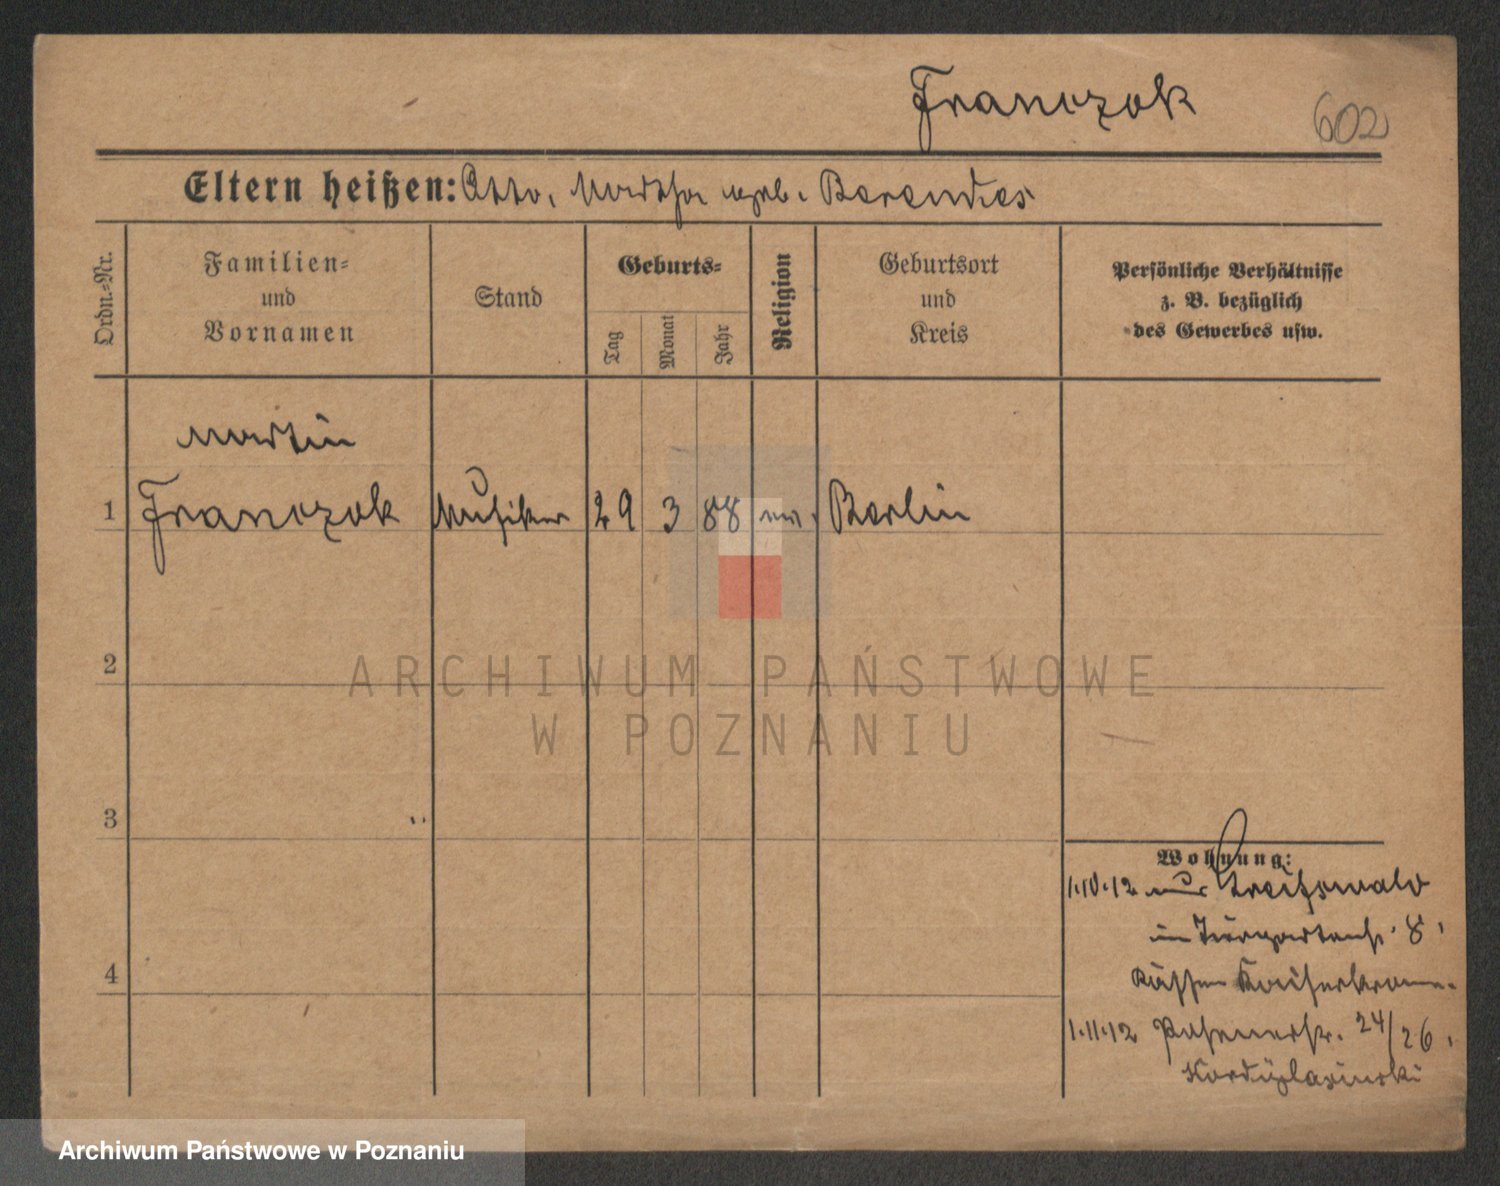 Franczok
602
Eltern heißen: Otto, Martha geb. Berendes
Ordn.-Nr.
Familien-
und
Vornamen
Stand
Geburts-
Tag
Monat
Jahr
Religion
Geburtsort
und
Kreis
Persönliche Verhältnisse
z. B. bezüglich
des Gewerbes usw.
Martin
1 Franczok Musiker 29 3 88 ev. Berlin
2
3
4
Wohnung:
1.10.12 aus Greifswald
in Tiergartenstr. 8,
Kaiserkrone.
1.11.12 Posenerstr. 24/26,
ARCHIWUM PAŃSTWOWE
W POZNANIU
Archiwum Państwowe w Poznaniu